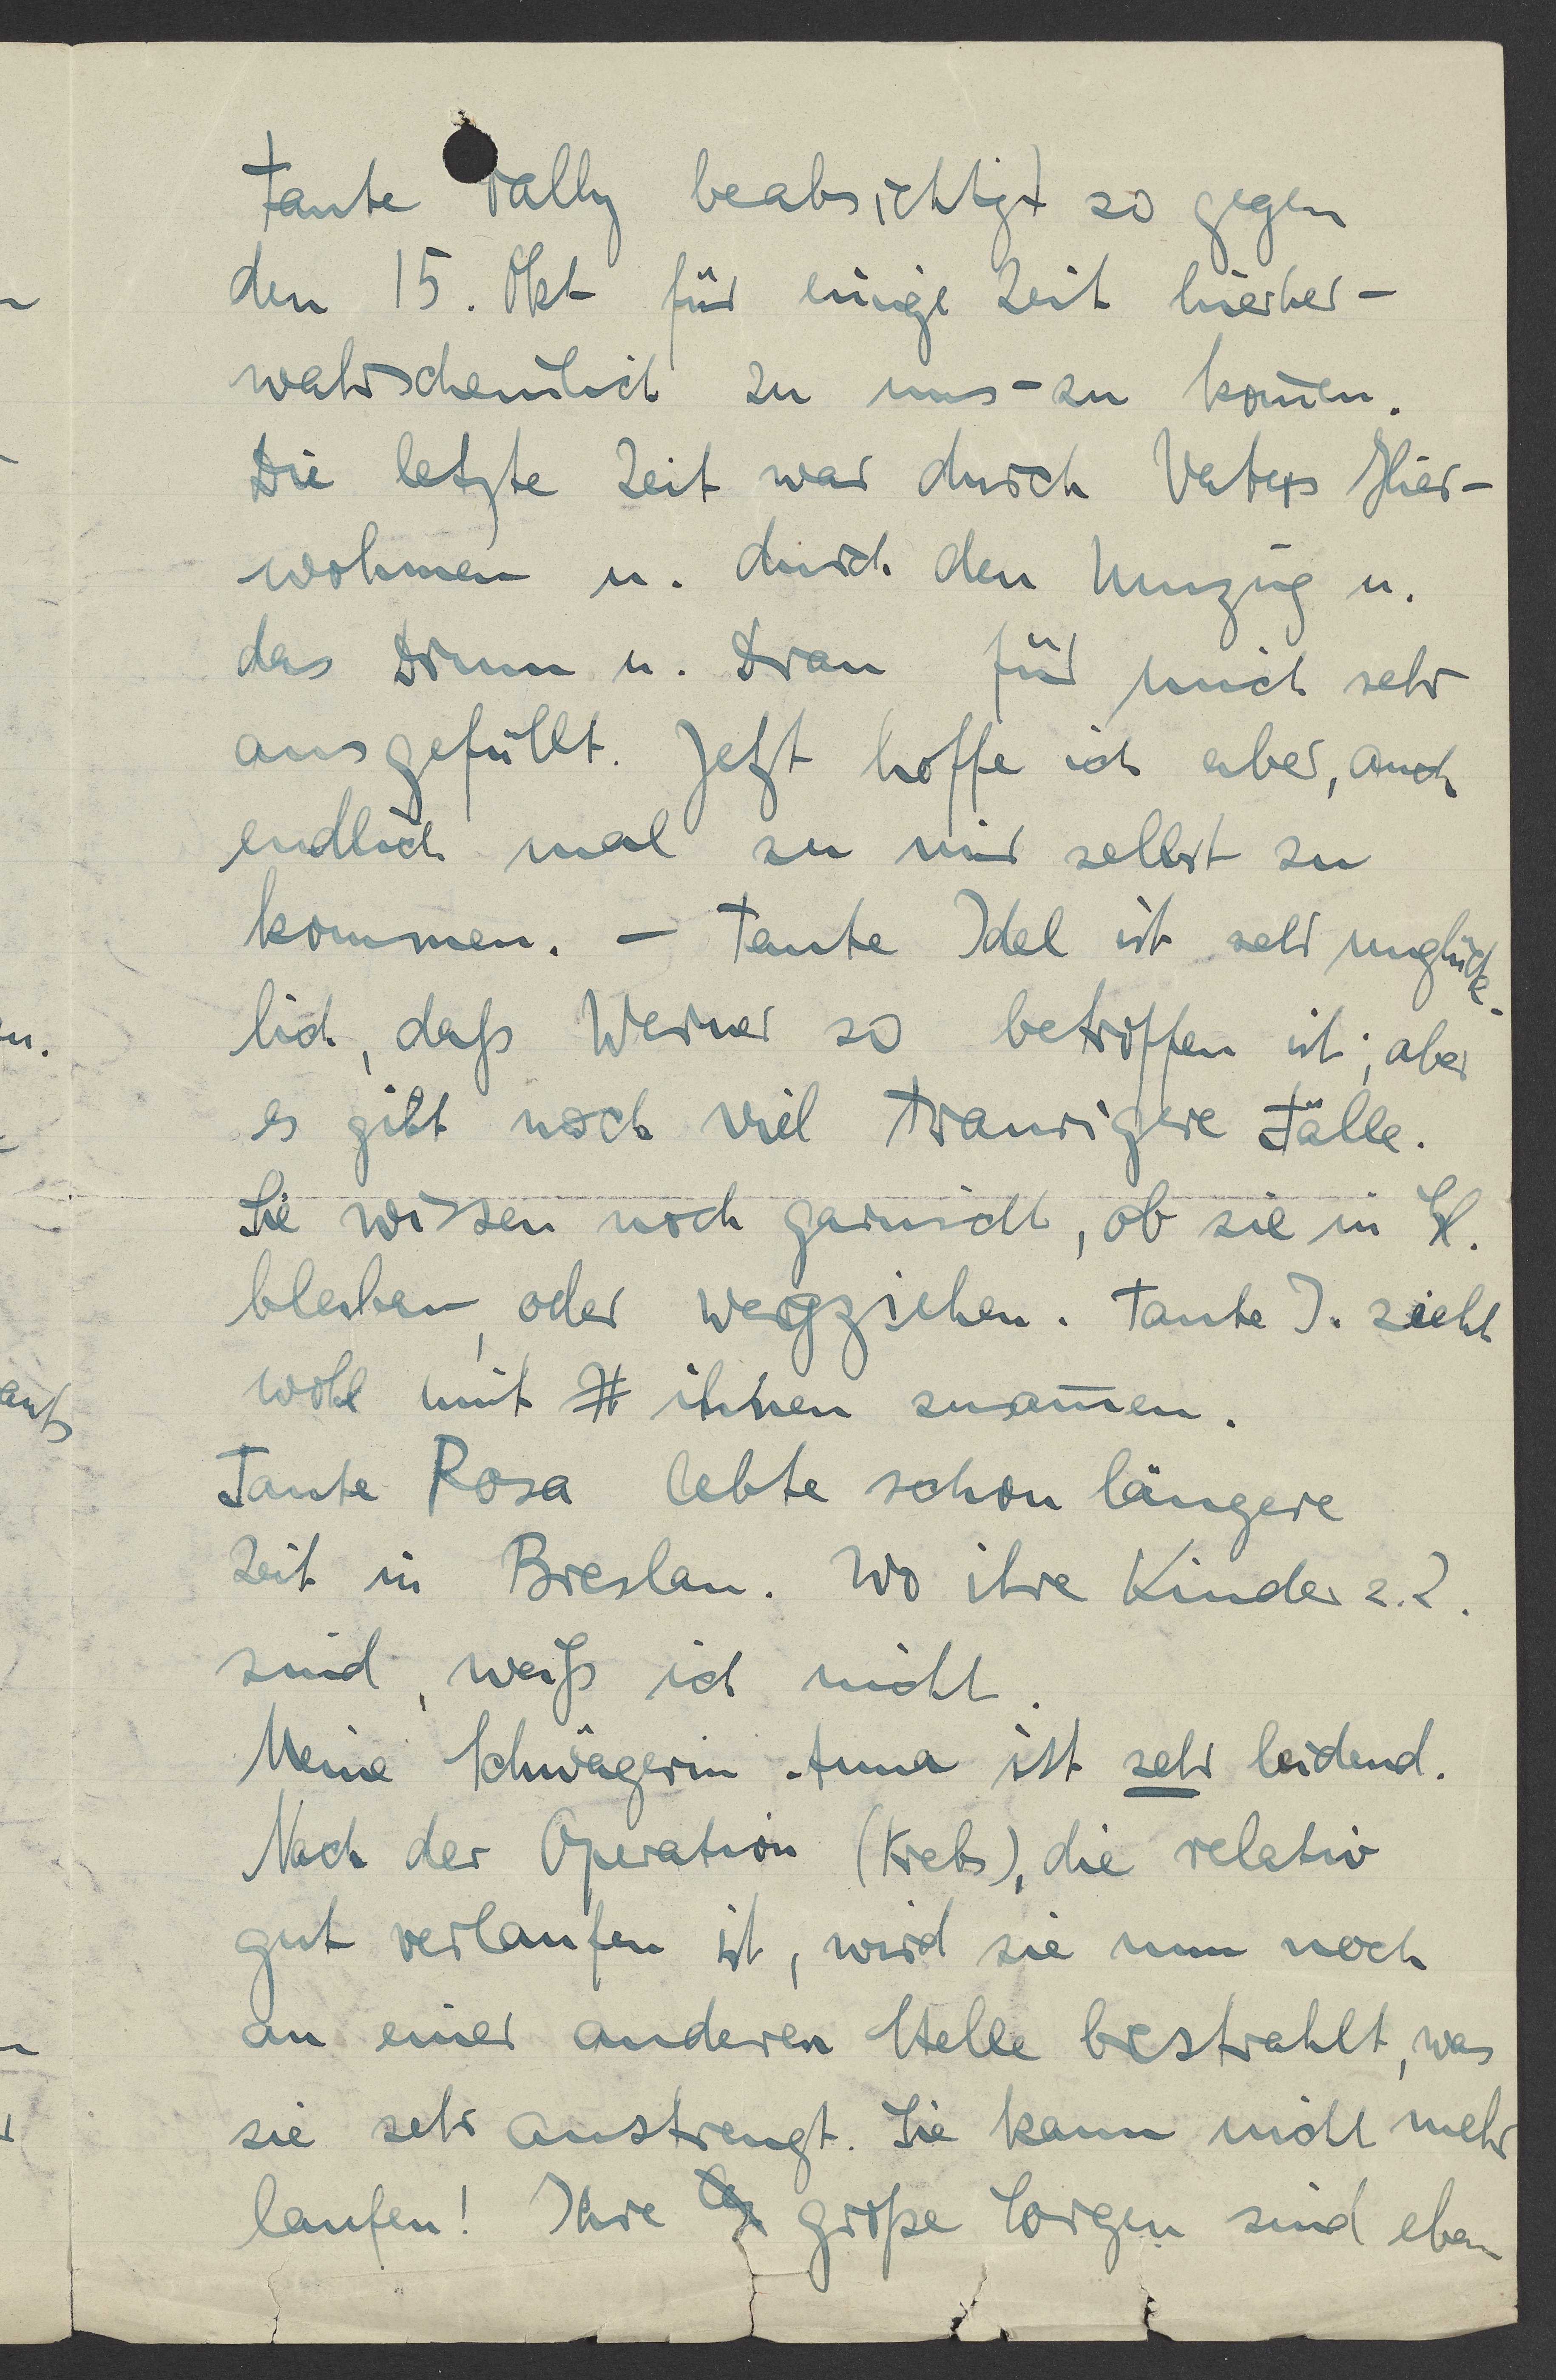 Tante Vally beabsichtigt so gegen
den 15. Okt für einige Zeit hierher -
wahrscheinlich zu uns - zu kom̄en.
Die letzte Zeit war durch Vaters Hier-
wohnen u. durch den Umzug u.
das Drum u. Dran für mich sehr
ausgefüllt. Jetzt hoffe ich aber, auch
endlich mal zu mir selbst zu
kommen. - Tante Idel ist sehr unglück-
lich, daß Werner so betroffen ist; aber
es gibt noch viel traurigere Fälle.
Sie wissen noch garnicht, ob sie in H.
bleiben, oder wegziehen. Tante I. zieht
wohl mit ihnen zusam̄en.
Tante Rosa lebte schon längere
Zeit in Breslau. Wo ihre Kinder z.Z.
sind, weiß ich nicht.
Meine Schwägerin Anna ist sehr leidend.
Nach der Operation (Krebs), die relativ
gut verlaufen ist, wird sie nun noch
an einer anderen Stelle bestrahlt, was
sie sehr anstrengt. Sie kann nicht mehr
laufen! Ihre große Sorgen sind eben